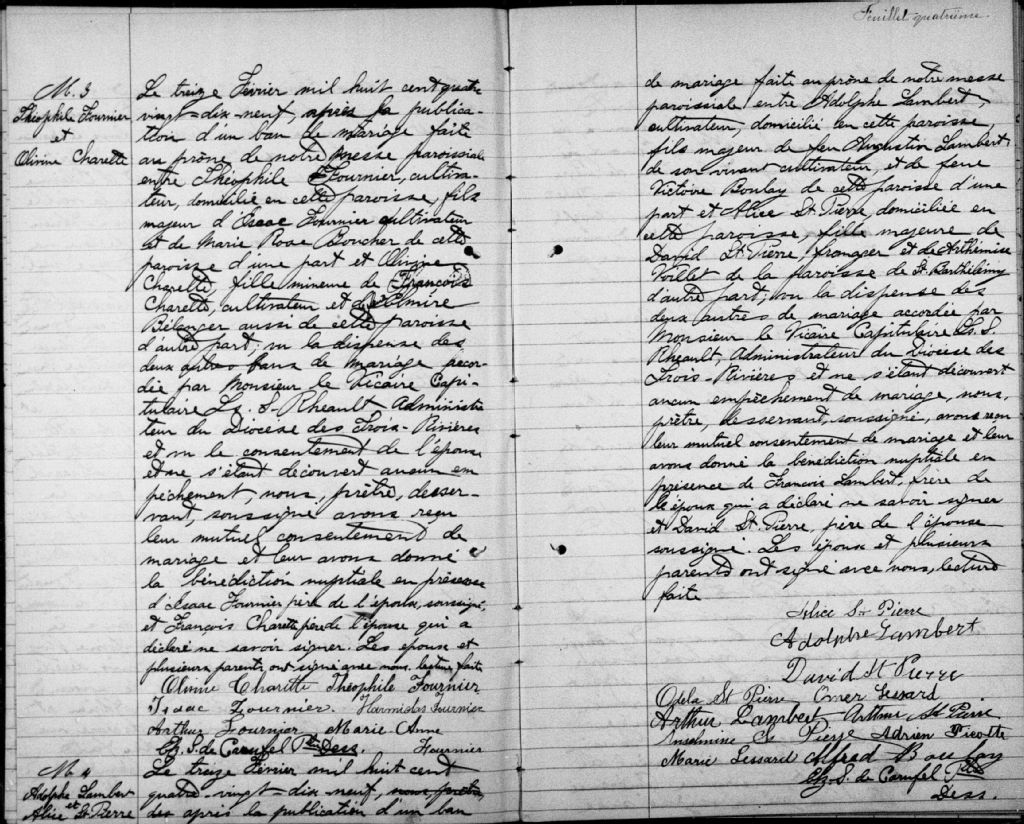 Feuillet quatrième.
M. 3
Théophile Fournier
et
Olivine Charette
Le treize Février mil huit cent quatre
vingt-dix-neuf, après la publica-
tion d'un ban de mariage faite
au prône de notre messe paroissiale
entre Théophile Fournier, cultiva-
teur, domicilié en cette paroisse, fils
majeur d'Isaac Fournier cultivateur
et de Marie Rose Boucher de cette
paroisse d'une part et Olivine
Charette, fille mineure de François
Charette, cultivateur, et de Elmire
Bélanger aussi de cette paroisse
d'autre part; vu la dispense des
deux autres bans de mariage accor-
dée par Monsieur le Vicaire Capi-
tulaire S. Rheault Administra
teur du Diocèse des Trois-Rivières
et vu le consentement de l'épouse
et ne s'étant découvert aucun em
pêchement, nous, prêtre, desser-
vant, soussigné avons reçu
leur mutuel consentement de
mariage et leur avons donné
la bénédiction nuptiale en présence
d'Isaac Fournier père de l'époux, soussigné,
et François Charette père de l'épouse qui a
déclaré ne savoir signer. Les époux et
plusieurs parents ont signé avec nous, lecture faite
Olivine Charette Théophile Fournier
Isaac Fournier. Harmidas Fournier
Arthur Fournier Marie Anne
Fournier
Ch. S. de Carufel Ptre Dess.
M. 4
Adolphe Lambert
et
Alice St Pierre
Le treize Février mil huit cent
quatre-vingt-dix-neuf,
après la publication d'un ban
de mariage faite au prône de notre messe
paroissial entre Adolphe Lambert,
cultivateur, domicilié en cette paroisse,
fils majeur de feu Augustin Lambert,
de son vivant cultivateur, et de feue
Victoire Boulay de cette paroisse d'une
part et Alice St. Pierre, domiciliée en
cette paroisse, fille majeure de
David St. Pierre, fromager et de Arthémise
de la paroisse de St. Barthélémy
d'autre part; vu la dispense des
deux autres de mariage accordée par
Monsieur le Vicaire Capitulaire S.
Rheault, Administrateur du Diocèse des
Trois-Rivières et ne s'étant découvert
aucun empêchement de mariage, nous,
prêtre, desservant, soussigné, avons reçu
leur mutuel consentement de mariage et leur
avons donné la bénédiction nuptiale en
présence de François Lambert, frère de
l'époux qui a déclaré ne savoir signer
et David St. Pierre, père de l'épouse
soussigné. Les époux et plusieurs
parents ont signé avec nous, lecture
faite
Alice St Pierre
Adolphe Lambert
David St Pierre
Odela St Pierre Omer Lessard
Arthur Lambert Arthur St Pierre
St Pierre Adrien Picotte
Marie Lessard Alfred Boulay
Ch. S. de Carufel Ptre
Dess.